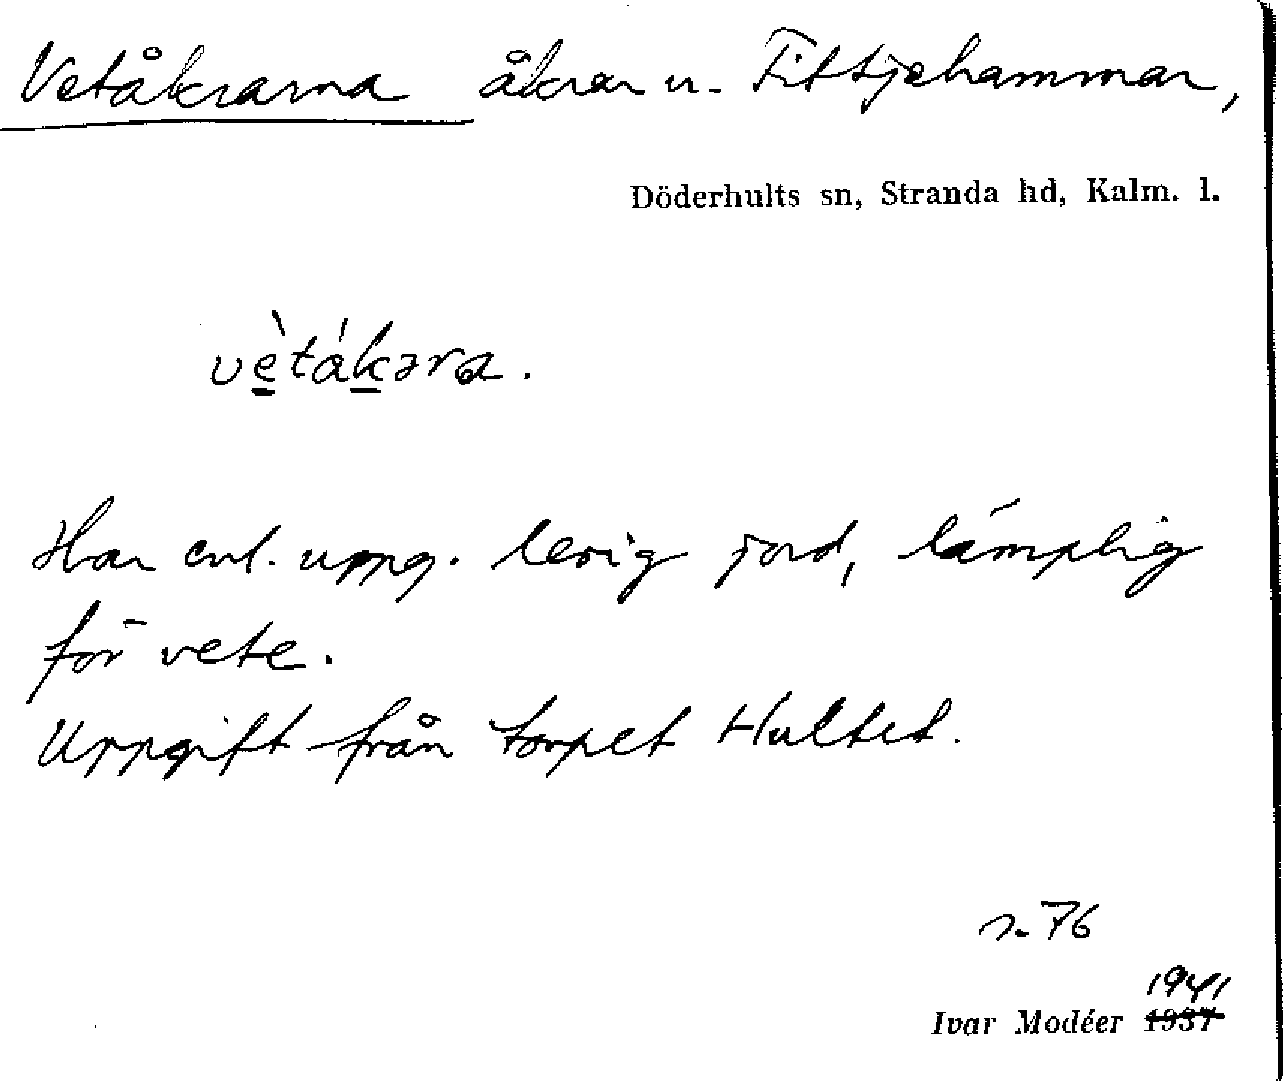 Vetåkrarna åkrar u. Fittjehammar,
Döderhults sn, Stranda hd, Kalm. l.
vètákəra.
Har enl. uppg. lerig jord, lämplig
för vete.
Uppgift från torpet Hultet.
s. 76
1941
Ivar Modéer 1937